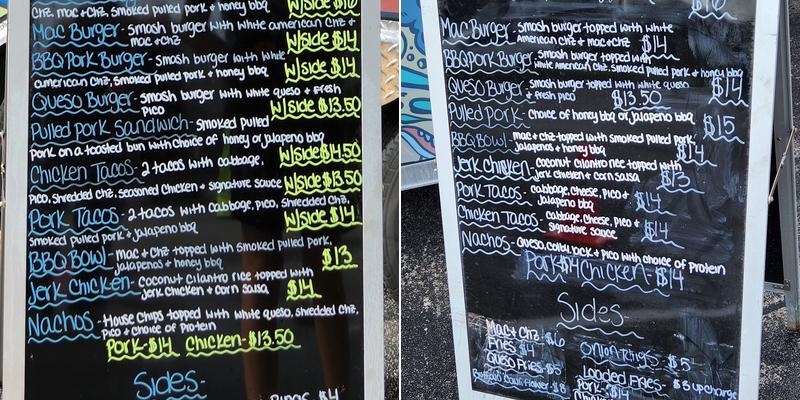 Chz, mac + chz, smoked pulled pork + honey bbq W/side $16
Mac Burger - smash burger with white american chz +
mac + chz W/side $14
BBQ Pork Burger - smash burger with white
american chz, smoked pulled pork + honey bbq W/side $14
Queso Burger - smash burger with white queso + fresh
pico W/side $13.50
Pulled Pork Sandwich - smoked pulled
pork on a toasted bun with choice of honey or jalapeno bbq W/side $14.50
Chicken Tacos - 2 tacos with cabbage,
pico, shredded chz, seasoned chicken + signature sauce W/side $13.50
Pork Tacos - 2 tacos with cabbage, pico, shredded chz,
smoked pulled pork + jalapeno bbq W/side $14
BBQ Bowl - mac + chz topped with smoked pulled pork,
jalapenos + honey bbq $13
Jerk Chicken - coconut cilantro rice topped with
jerk chicken + corn salsa $14
Nachos - House chips topped with white queso, shredded chz,
pico + choice of protein
Pork - $14 Chicken - $13.50
Sides -
Rings $4
$16
Mac Burger - smash burger topped with white
American chz + mac + chz $14
BBQ pork Burger - smash burger topped with
white american chz, smoked pulled pork + honey bbq
$14
Queso Burger - smash burger topped with white queso
+ fresh pico $13.50
Pulled Pork - choice of honey bbq or jalapeno bbq
$15
BBQ Bowl - mac + chz topped with smoked pulled pork
jalapenos + honey bbq $14
Jerk Chicken - coconut cilantro rice topped with
jerk chicken + corn salsa $13
Pork Tacos - cabbage, cheese, pico +
jalapeno bbq $14
Chicken Tacos - cabbage, cheese, pico +
signature sauce $14
Nachos - Queso, colby jack + pico with choice of protein
Pork $14 Chicken - $14
Sides
Mac + Chz - $6
Fries - $4
Onion Rings - $5
Queso Fries - $5
Loaded Fries - $3 upcharge
Buffalo Cauliflower - $8
Pork - $14